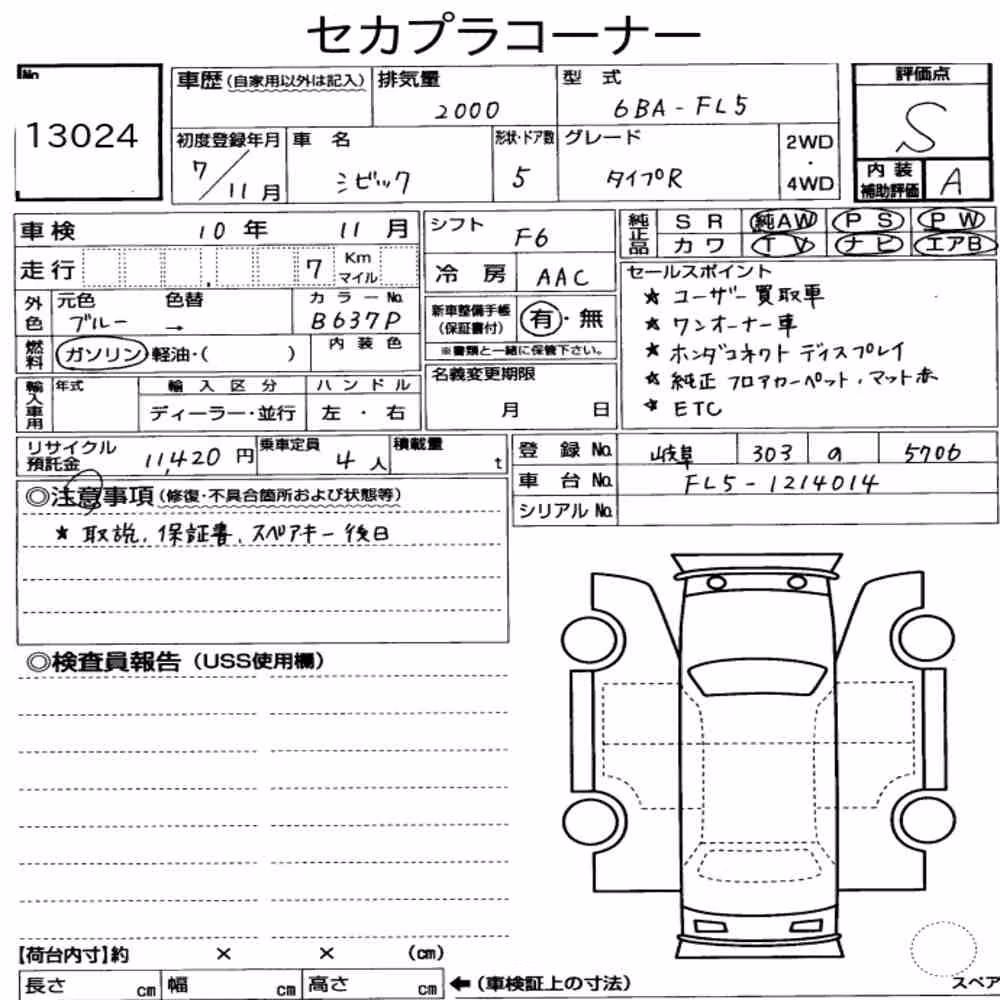 セカプラコーナー
No
13024
車歴(自家用以外は記入)
排気量
2000
型 式
6BA-FL5
評価点
S
内装
補助評価
A
初度登録年月
7/11月
車 名
シビック
形状・ドア数
5
グレード
タイプR
2WD
・
4WD
車検 10年 11月
走行 7 Km
マイル
外色
元色
ブルー
色替
→
カラーNo.
B637P
燃料
ガソリン・軽油・( )
内装色
輸入車用
年式
輸入区分
ディーラー・並行
ハンドル
左・右
シフト
F6
冷房
AAC
新車整備手帳
(保証書付)
有・無
※書類と一緒に保管下さい。
名義変更期限
月 日
純正品
SR 純AW PS PW
カワ TV ナビ エアB
セールスポイント
★ユーザー買取車
★ワンオーナー車
★ホンダコネクトディスプレイ
★純正フロアカーペット・マット赤
★ETC
リサイクル
預託金
11,420円
乗車定員
4人
積載量
t
登録No. 岐阜 303 の 5706
車台No. FL5-1214014
シリアルNo.
◎注意事項(修復・不具合箇所および状態等)
★取説、保証書、スペアキー後日
◎検査員報告(USS使用欄)
【荷台内寸】約 × × (cm)
長さ cm 幅 cm 高さ cm ←(車検証上の寸法)
スペア